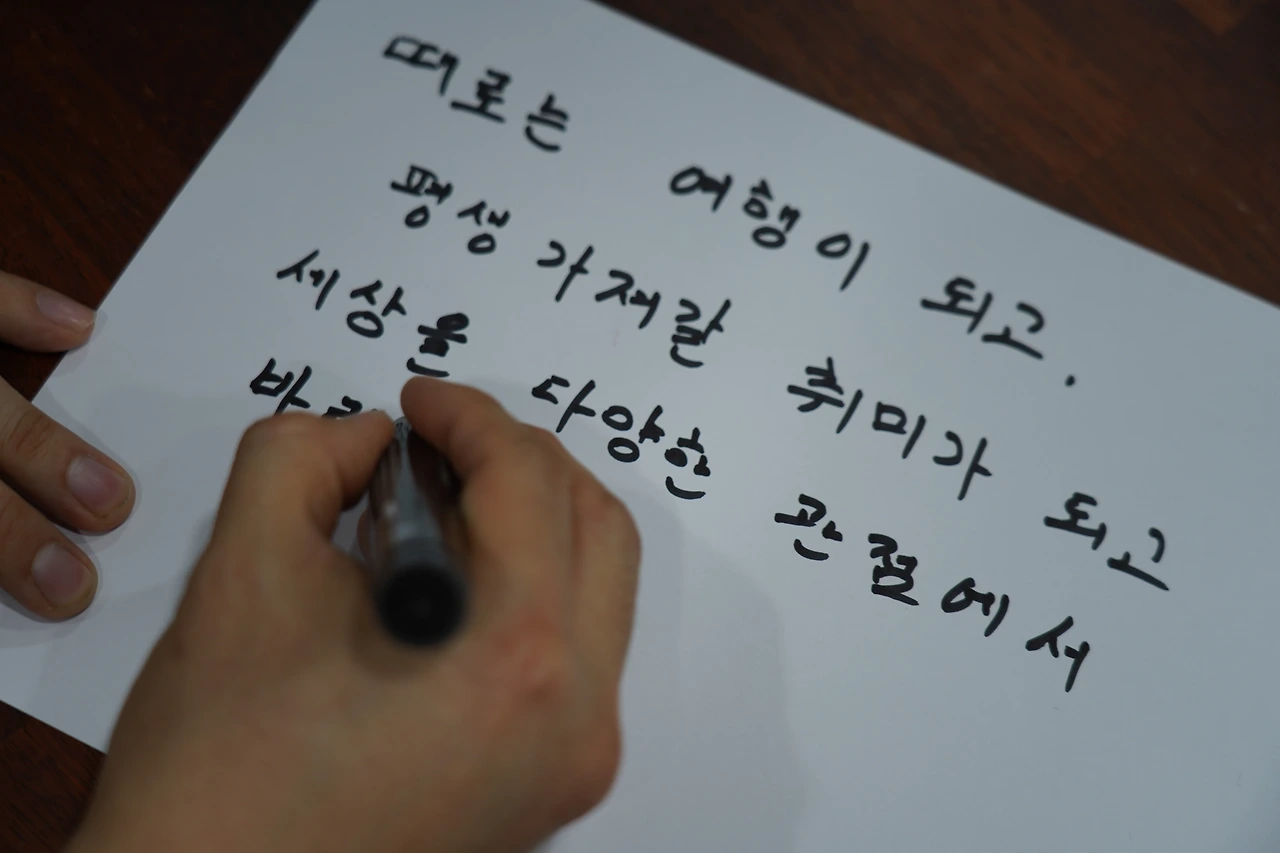 때로는 여행이 되고.
평생 가져갈 취미가 되고
세상을 다양한 관점에서